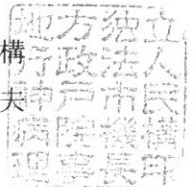 構
夫
地方独立
行政法人
神戸市民
病院機構
理事長印